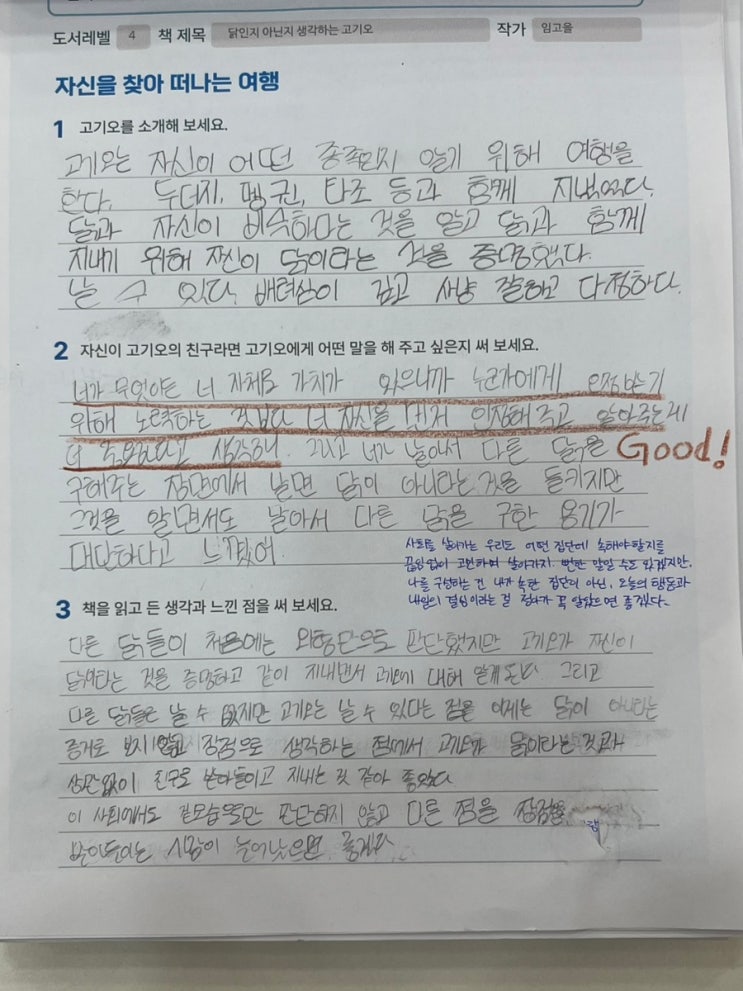 도서레벨 4 책 제목 닭인지 아닌지 생각하는 고기오 작가 임고을
자신을 찾아 떠나는 여행
1 고기오를 소개해 보세요.
고기오는 자신이 어떤 종족인지 알기 위해 여행을
한다. 두더지, 펭귄, 타조 등과 함께 지냈었다.
닭과 자신이 비슷하다는 것을 알고 닭과 함께
지내기 위해 자신이 닭이라는 것을 증명했다.
날 수 있다. 배려심이 깊고 사냥 잘하고 다정하다.
2 자신이 고기오의 친구라면 고기오에게 어떤 말을 해 주고 싶은지 써 보세요.
너가 무엇이든 너 자체로 가치가 있으니까 누군가에게 인정받기
위해 노력하는 것보다 너 자신을 먼저 인정해주고 알아주는게
더 중요하다고 생각해. 그리고 네가 날아서 다른 닭을 Good!
구해주는 장면에서 날면 닭이 아니라는 것을 들키지만
그것을 알면서도 날아서 다른 닭을 구한 용기가
대단하다고 느꼈어.
사회를 살아가는 우리도 어떤 집단에 속해야할지를
끊임없이 고민하며 살아가지. 뻔한 말일 수도 있겠지만,
나를 구성하는 건 내가 속한 집단이 아닌, 오늘의 행동과
내일의 결심이라는 걸 꼭 알았으면 좋겠다.
3 책을 읽고 든 생각과 느낀 점을 써 보세요.
다른 닭들이 처음에는 외형만으로 판단했지만 고기오가 자신이
닭이라는 것을 증명하고 같이 지내면서 고기오에 대해 알게 된다 그리고
다른 닭들은 날 수 없지만 고기오는 날 수 있다는 점을 이제는 닭이 아니라는
증거로 보지 않고 장점으로 생각하는 점에서 고기오가 닭이라는 것과
상관없이 친구로 받아들이고 지내는 것 같아 좋았다
이 사회에서도 겉모습으로만 판단하지 않고 다른 점을 장점으로
받아들이는 사람이 늘어났으면 좋겠다